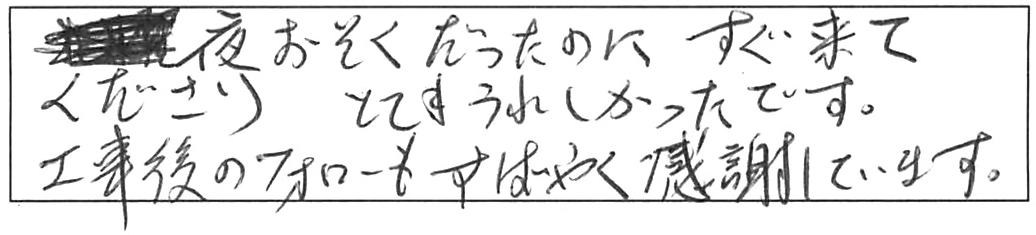 夜おそくだったのに すぐ来て
くださり とてもうれしかったです。
工事後のフォローもすばやく感謝しています。